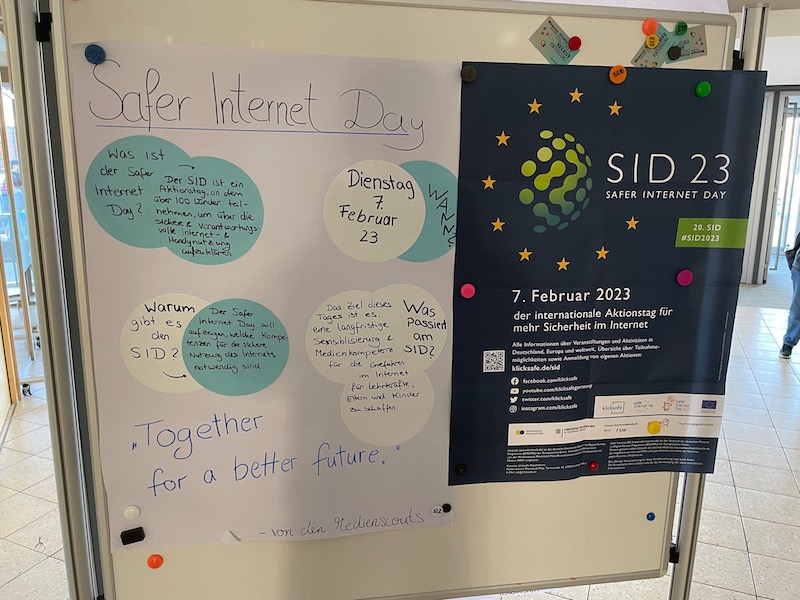 Safer Internet Day
Was ist
der Safer
Internet
Day?
Der SID ist ein
Aktionstag, an dem
über 100 Länder teil-
nehmen, um über die
sichere & verantwortungs-
volle Internet- &
Handynutzung
aufzuklären.
Dienstag
7.
Februar
23
WANN
Warum
gibt es
den
SID?
Der Safer
Internet Day soll
aufzeigen, welche Kompe-
tenzen für die sichere
Nutzung des Internets
notwendig sind.
Das Ziel dieses
Tages ist es,
eine langfristige
Sensibilisierung &
Medienkompetenz
für die Gefahren
im Internet
für Lehrkräfte,
Eltern und Kinder
zu schaffen.
Was
passiert
am
SID?
"Together
for a better future."
- von den Medienscouts
SID 23
SAFER INTERNET DAY
20. SID
#SID2023
7. Februar 2023
der internationale Aktionstag für
mehr Sicherheit im Internet
Alle Informationen über Veranstaltungen und Aktivitäten in
Deutschland, Europa und weltweit, Übersicht über Teilnahme-
möglichkeiten sowie Anmeldung von eigenen Aktionen:
klicksafe.de/sid
facebook.com/klicksafe
youtube.com/klicksafegermany
twitter.com/klicksafe
instagram.com/klicksafe
klicksafe